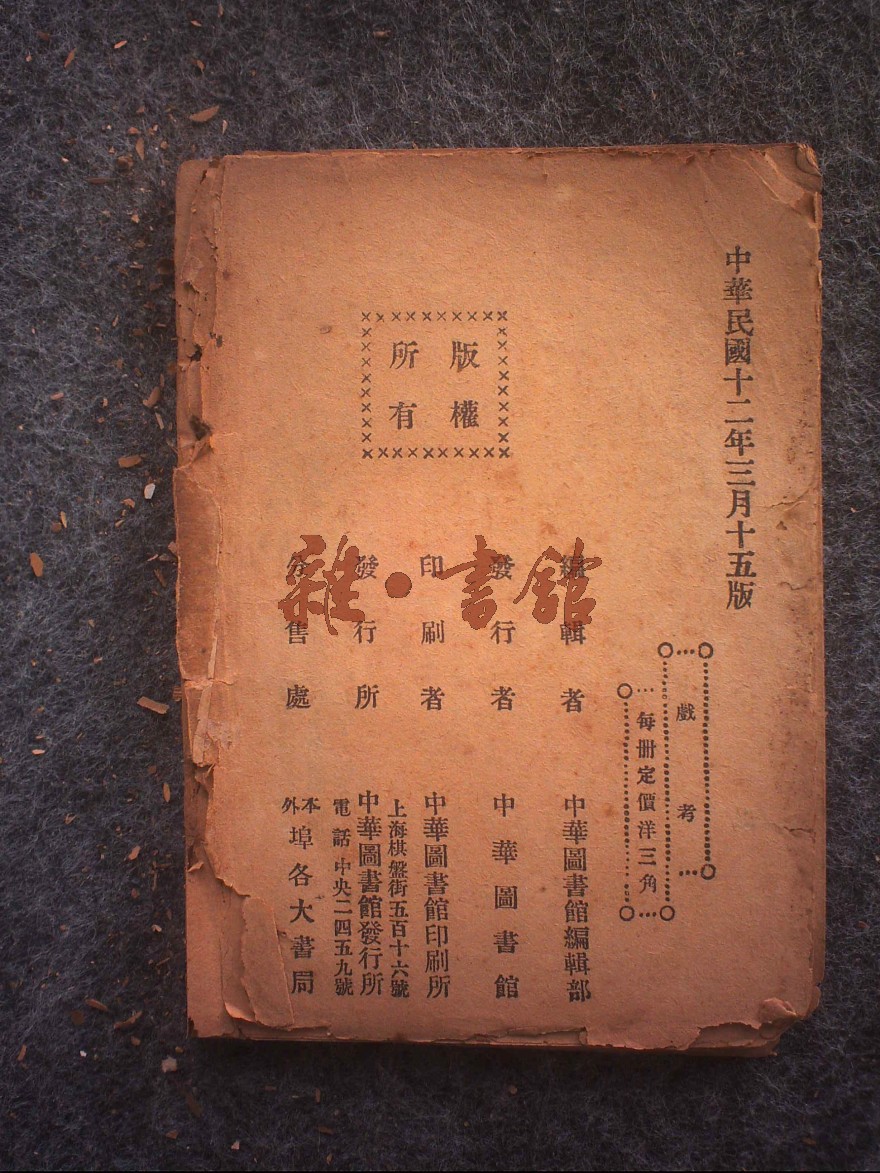 中華民國十二年三月十五版
戲考
每册定價洋三角
版權
所有
編輯者 中華圖書館編輯部
發行者 中華圖書館
印刷者 中華圖書館印刷所
上海棋盤街五百十六號
發行所 中華圖書館發行所
電話中央二四五九號
分售處 本外埠各大書局
雜·書館